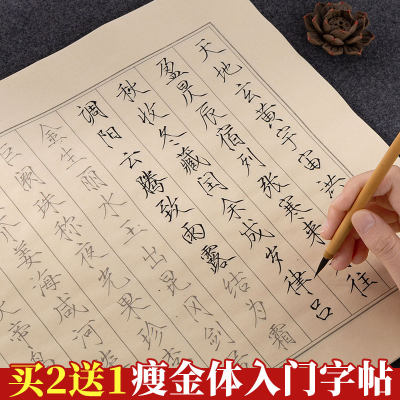 天地玄黄宇宙洪
盈昃辰宿列张寒来往
秋收冬藏闰余成岁律吕
调阳云腾致雨露结为霜
金生丽水玉出昆冈剑
巨阙珠称夜光果珍
芥姜海咸河
帝鸟
买2送1瘦金体入门字帖